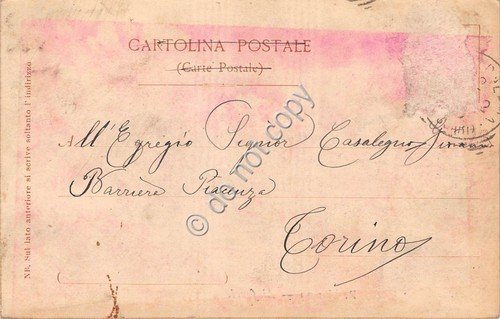 CARTOLINA POSTALE
(Carte Postale)
All'Egregio Signior Casalegno
Barriera Piacenza
Torino
NB. Sul lato anteriore si scrive soltanto l'indirizzo
© do not copy